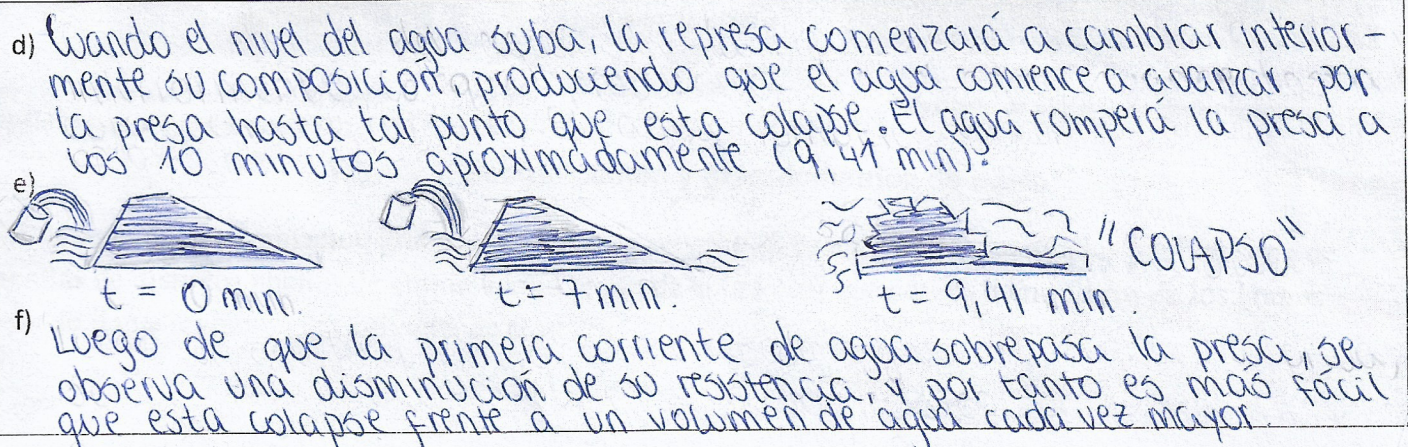 d) Cuando el nivel del agua suba, la represa comenzará a cambiar interior-
mente su composición, produciendo que el agua comience a avanzar por
la presa hasta tal punto que esta colapse. El agua romperá la presa a
los 10 minutos aproximadamente (9,41 min).
e)
"COLAPSO"
t = 0 min.
t = 7 min.
t = 9,41 min.
f) Luego de que la primera corriente de agua sobrepasa la presa, se
observa una disminución de su resistencia, y por tanto es más fácil
que esta colapse frente a un volumen de agua cada vez mayor.